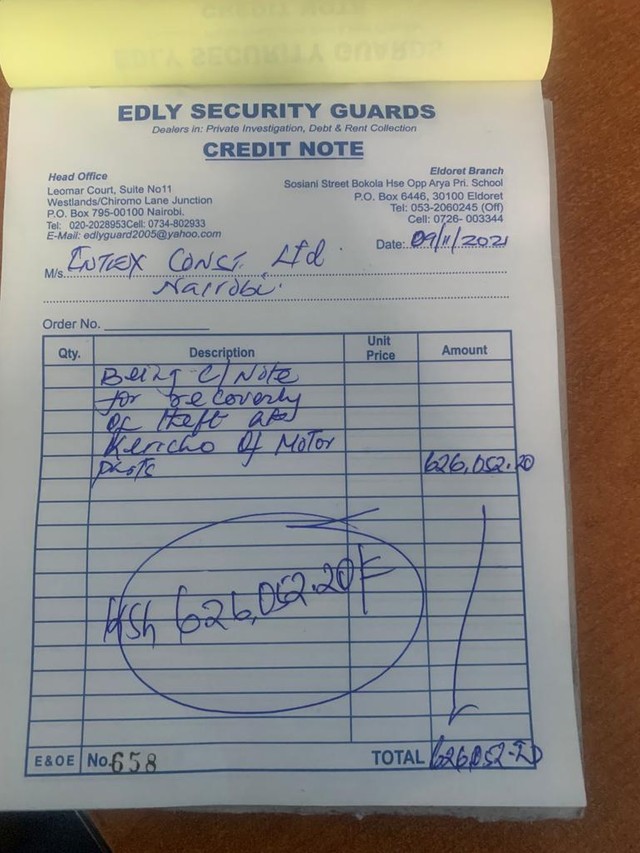 EDLY SECURITY GUARDS
Dealers in: Private Investigation, Debt & Rent Collection
CREDIT NOTE
Head Office
Leomar Court, Suite No11
Westlands/Chiromo Lane Junction
P.O. Box 795-00100 Nairobi.
Tel: 020-2028953Cell: 0734-802933
E-Mail: edlyguard2005@yahoo.com
Eldoret Branch
Sosiani Street Bokola Hse Opp Arya Pri. School
P.O. Box 6446, 30100 Eldoret
Tel: 053-2060245 (Off)
Cell: 0726- 003344
Date: 09/11/2021
M/s. INTEX CONST. Ltd.
Nairobi.
Order No.
Qty. Description Unit Price Amount
Being C/Note
for recoverly
of theft at
Kericho Of Motor
parts 626,052.20
KSh 626,052.20
E&OE No. 658 TOTAL 626,052-20